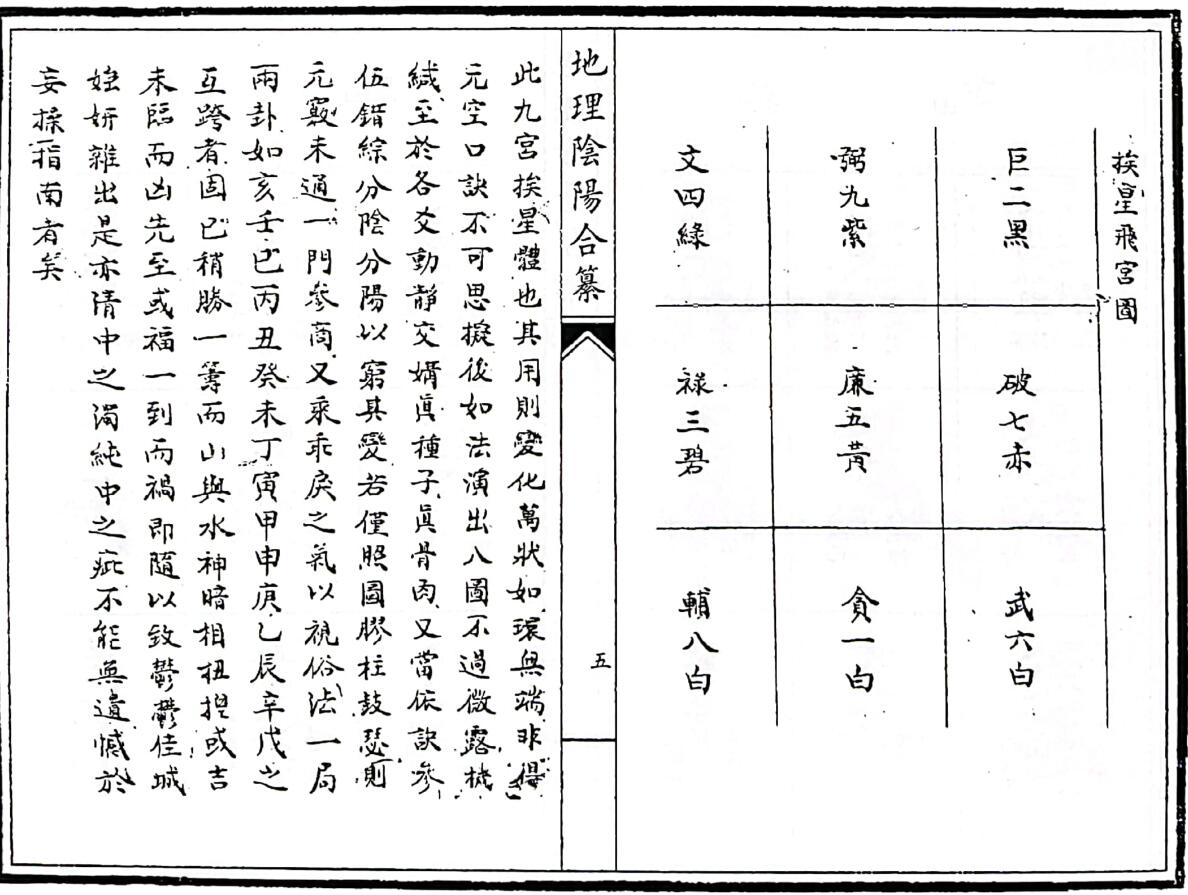 挨星飛宮圖
巨二黑
破七赤
武六白
弼九紫
廉五黃
貪一白
文四綠
祿三碧
輔八白
地理陰陽合纂
五
此九宮挨星體也其用則變化萬狀如環無端非得
元空口訣不可思擬後如法演出八圖不過微露機
緘至於各爻動靜交媾眞種子眞骨肉又當依訣參
伍錯綜分陰分陽以窮其變若僅照圖膠柱鼓瑟則
元竅未通一門參商又乘乖戾之氣以視俗法一局
兩卦如亥壬巳丙丑癸未丁寅甲申庚乙辰辛戌之
互跨者固已稍勝一籌而山與水神暗相扭揑或吉
未臨而凶先至或福一到而禍即隨以致鬱鬱佳城
媸妍雜出是亦清中之濁純中之疵不能無遺憾於
妄操指南者矣